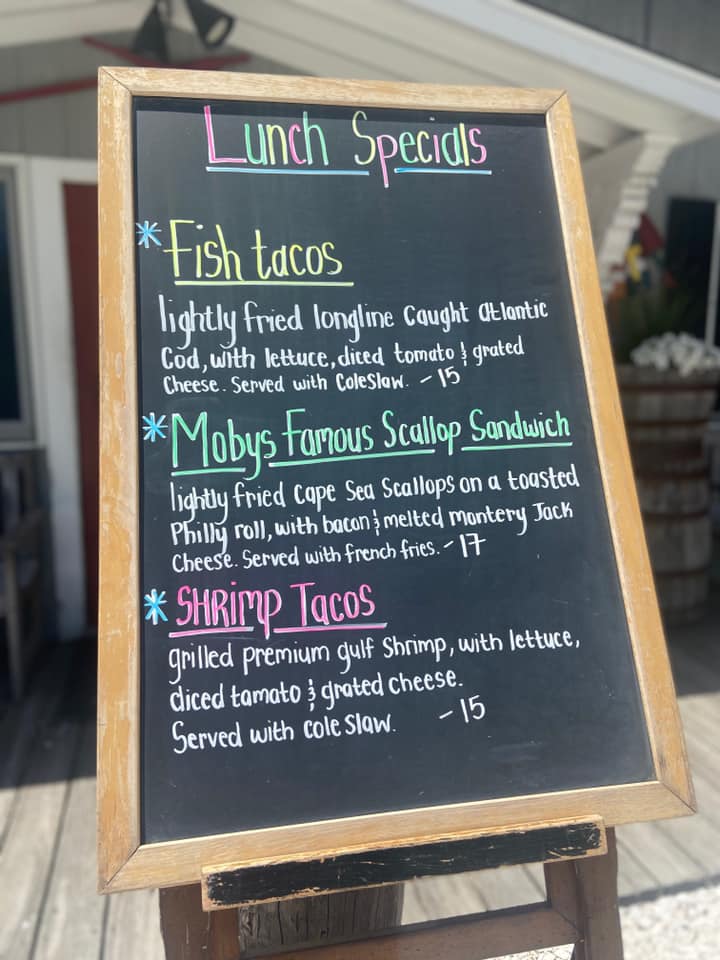 Lunch Specials
* Fish tacos
lightly fried longline Caught Atlantic
Cod, with lettuce, diced tomato & grated
Cheese. Served with Coleslaw. - 15
* Mobys Famous Scallop Sandwich
lightly fried Cape Sea Scallops on a toasted
Philly roll, with bacon & melted montery Jack
Cheese. Served with french fries. - 17
* SHRimp Tacos
grilled premium gulf Shrimp, with lettuce,
diced tamato & grated cheese.
Served with cole slaw. - 15